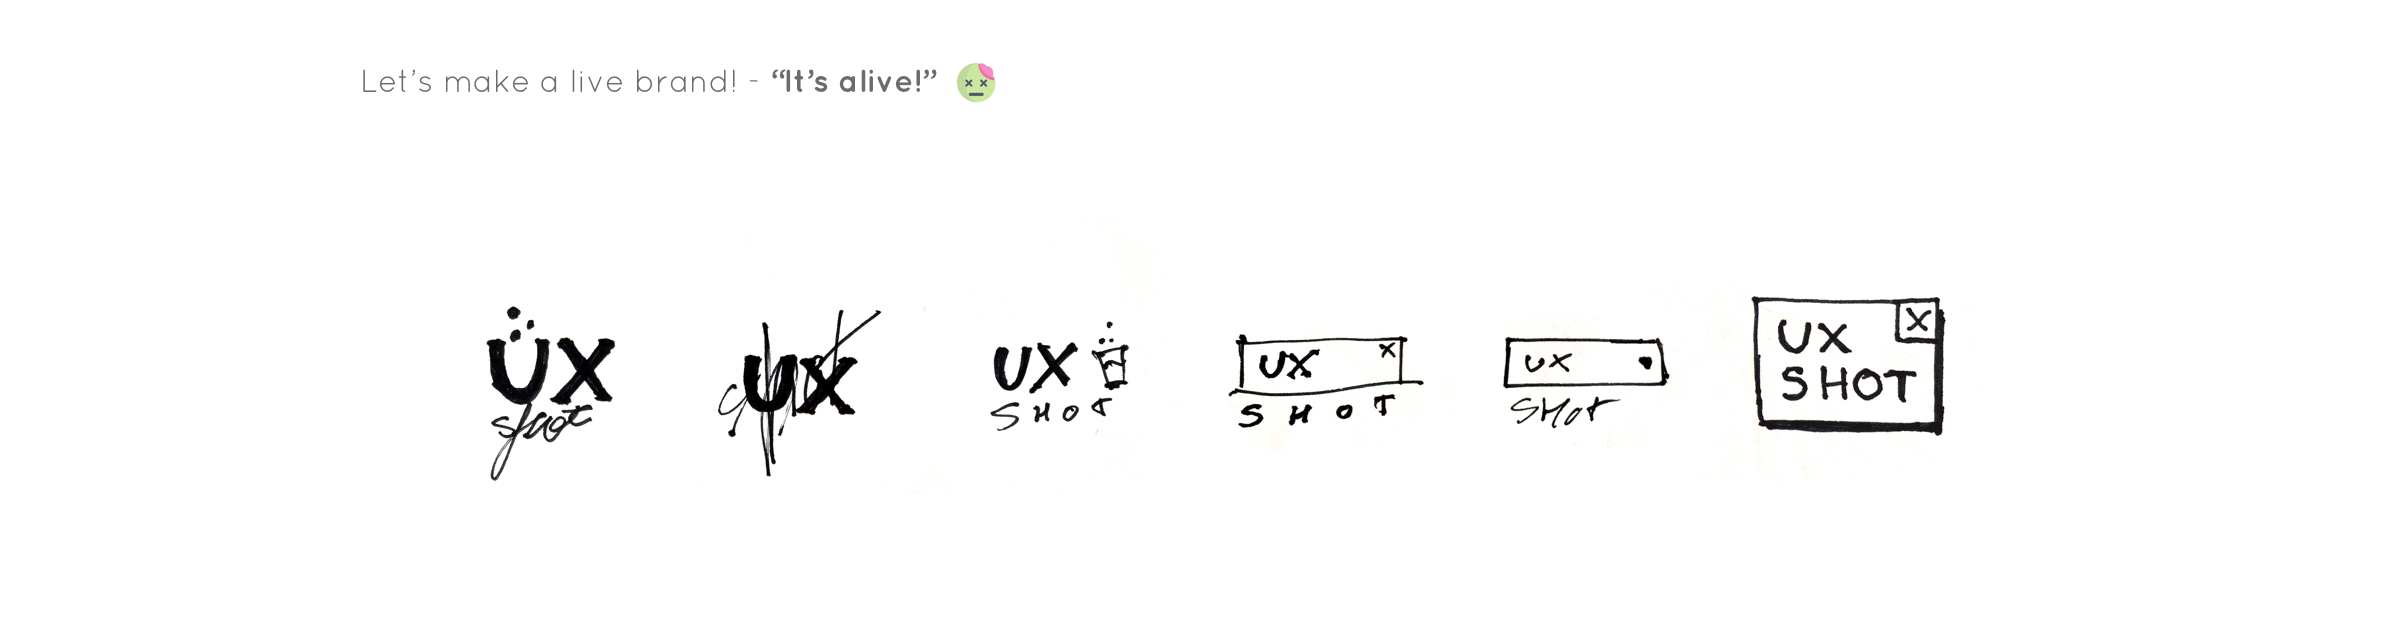 Let’s make a live brand! - “It’s alive!”
UX
shot
UX
UX
SHOT
UX X
SHOT
UX
SHOT
X
UX
SHOT